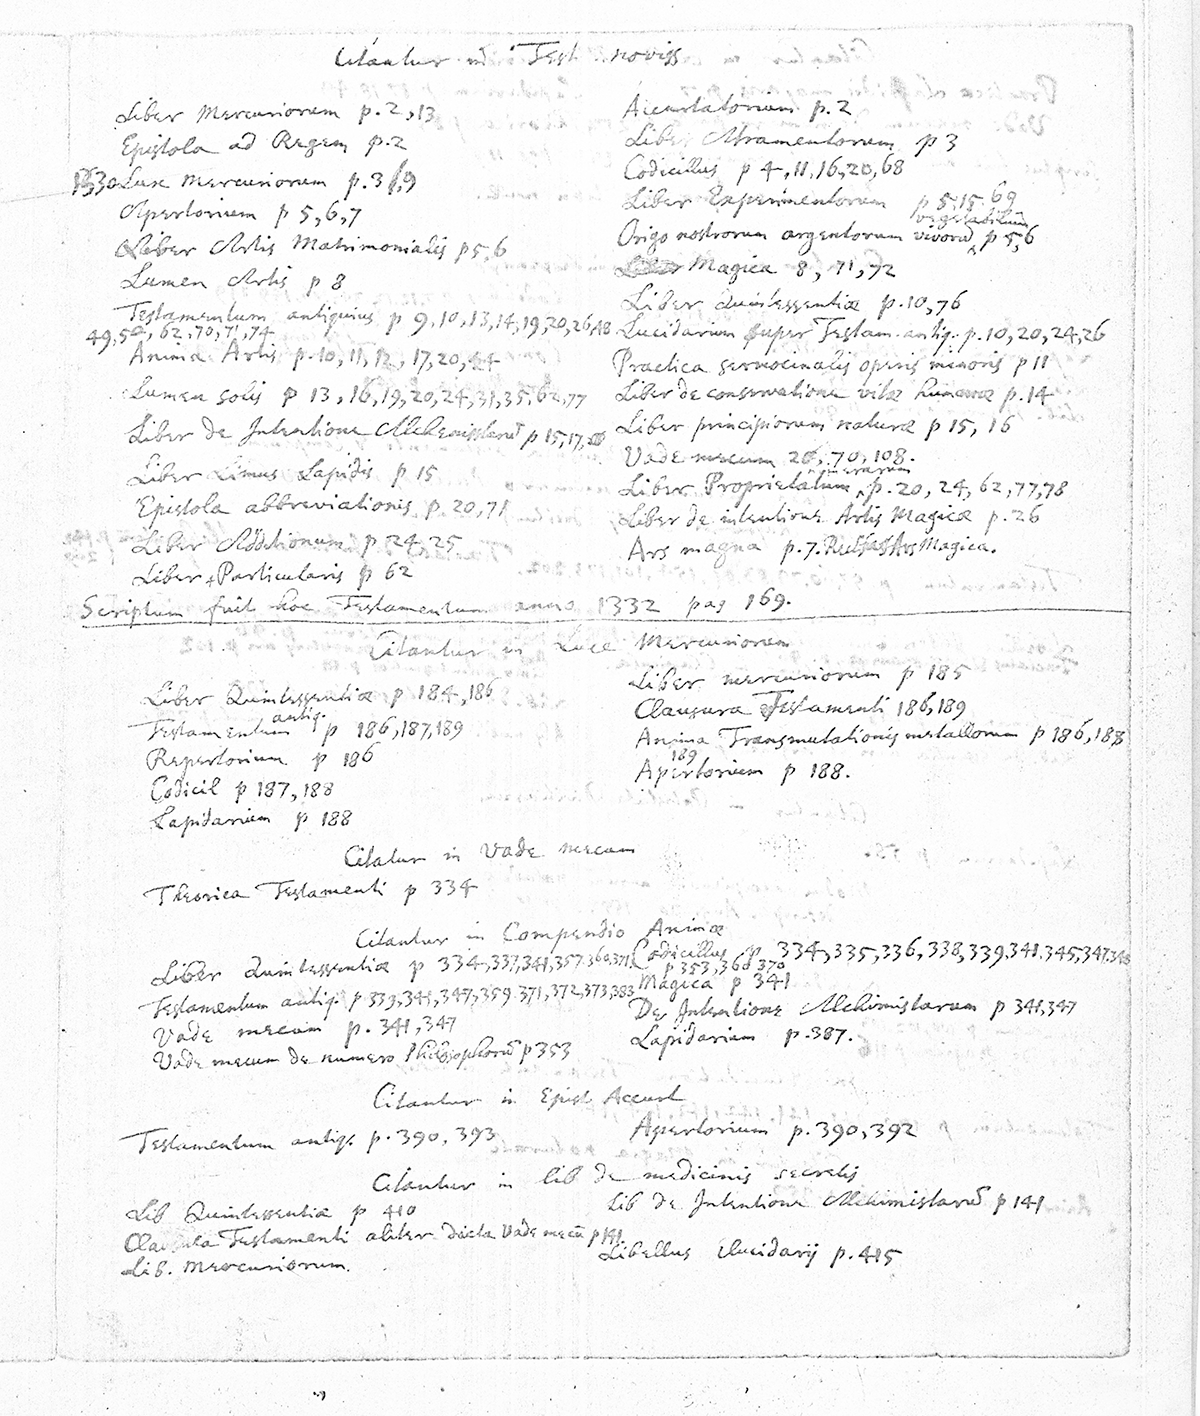 Citantur in Test noviss
Liber Mercuriorum p. 2, 13
Epistola ad Regem p. 2
Lux Mercuriorum p. 3, 9
Apertorium p 5, 6, 7
Liber Artis Matrimonialis p 5, 6
Lumen Artis p 8
Testamentum antiquius p 9, 10, 13, 14, 19, 20, 26, 48
49, 50, 62, 70, 71, 74
Anima Artis p. 10, 11, 12, 17, 20, 24
Lumen solis p 13, 16, 19, 20, 24, 31, 35, 62, 77
Liber de Intentione Alchemistarū p 15, 17,
Liber Limus Lapidis p 15
Epistola abbreviationis p. 20, 71
Liber Additionum p 24, 25
Liber Particularis p 62
Accurtatorium p. 2
Liber Atramentorum p 3
Codicillus p 4, 11, 16, 20, 68
Liber Experimentorum p 5, 15, 69
Origo nostrorum argentorum vivorū vegetabilium p 5, 6
Magica 8, 71, 72
Liber Quintessentiæ p. 10, 76
Lucidarium super Testam. antiq. p. 10, 20, 24, 26
Practica sermocinalis operis minoris p 11
Liber de conservatione vitæ humanæ p. 14
Liber principiorum naturæ p 15, 16
Vade mecum 26, 70, 108.
Liber Proprietatum p. 20, 24, 62, 77, 78
Liber de intentione Artis Magicæ p. 26
Ars magna p. 7. Ars Magica.
Scriptum fuit hoc Testamentum anno 1332 pag 169.
Citantur in Luce Mercuriorum
Liber Quintessentiæ p 184, 186
Testamentum antiq. p 186, 187, 189
Repertorium p 186
Codicil p 187, 188
Lapidarium p 188
Liber mercuriorum p 185
Clausura Testamenti 186, 189
Anima Transmutationis metallorum p 186, 188
189
Apertorium p 188.
Citatur in Vade mecum
Theorica Testamenti p 334
Citantur in Compendio Animæ
Liber Quintessentiæ p 334, 337, 341, 357, 360, 371
Testamentum antiq. p 339, 341, 347, 359, 371, 372, 373, 383
Vade mecum p. 341, 347
Vade mecum de numero Philosophorū p 353
Codicillus p. 334, 335, 336, 338, 339, 341, 345, 347, 348
p 353, 360, 370
Magica p 341
De Intentione Alchimistarum p 341, 347
Lapidarium p. 387.
Citantur in Epist Accurt
Testamentum antiq. p. 390, 393
Apertorium p. 390, 392
Citantur in lib de medicinis secretis
Lib Quintessentiæ p 410
Clausula Testamenti aliter dicta Vade mecū p 141
Lib. Mercuriorum.
Lib de Intentione Alchimistarū p 141
Libellus Elucidarij p. 415